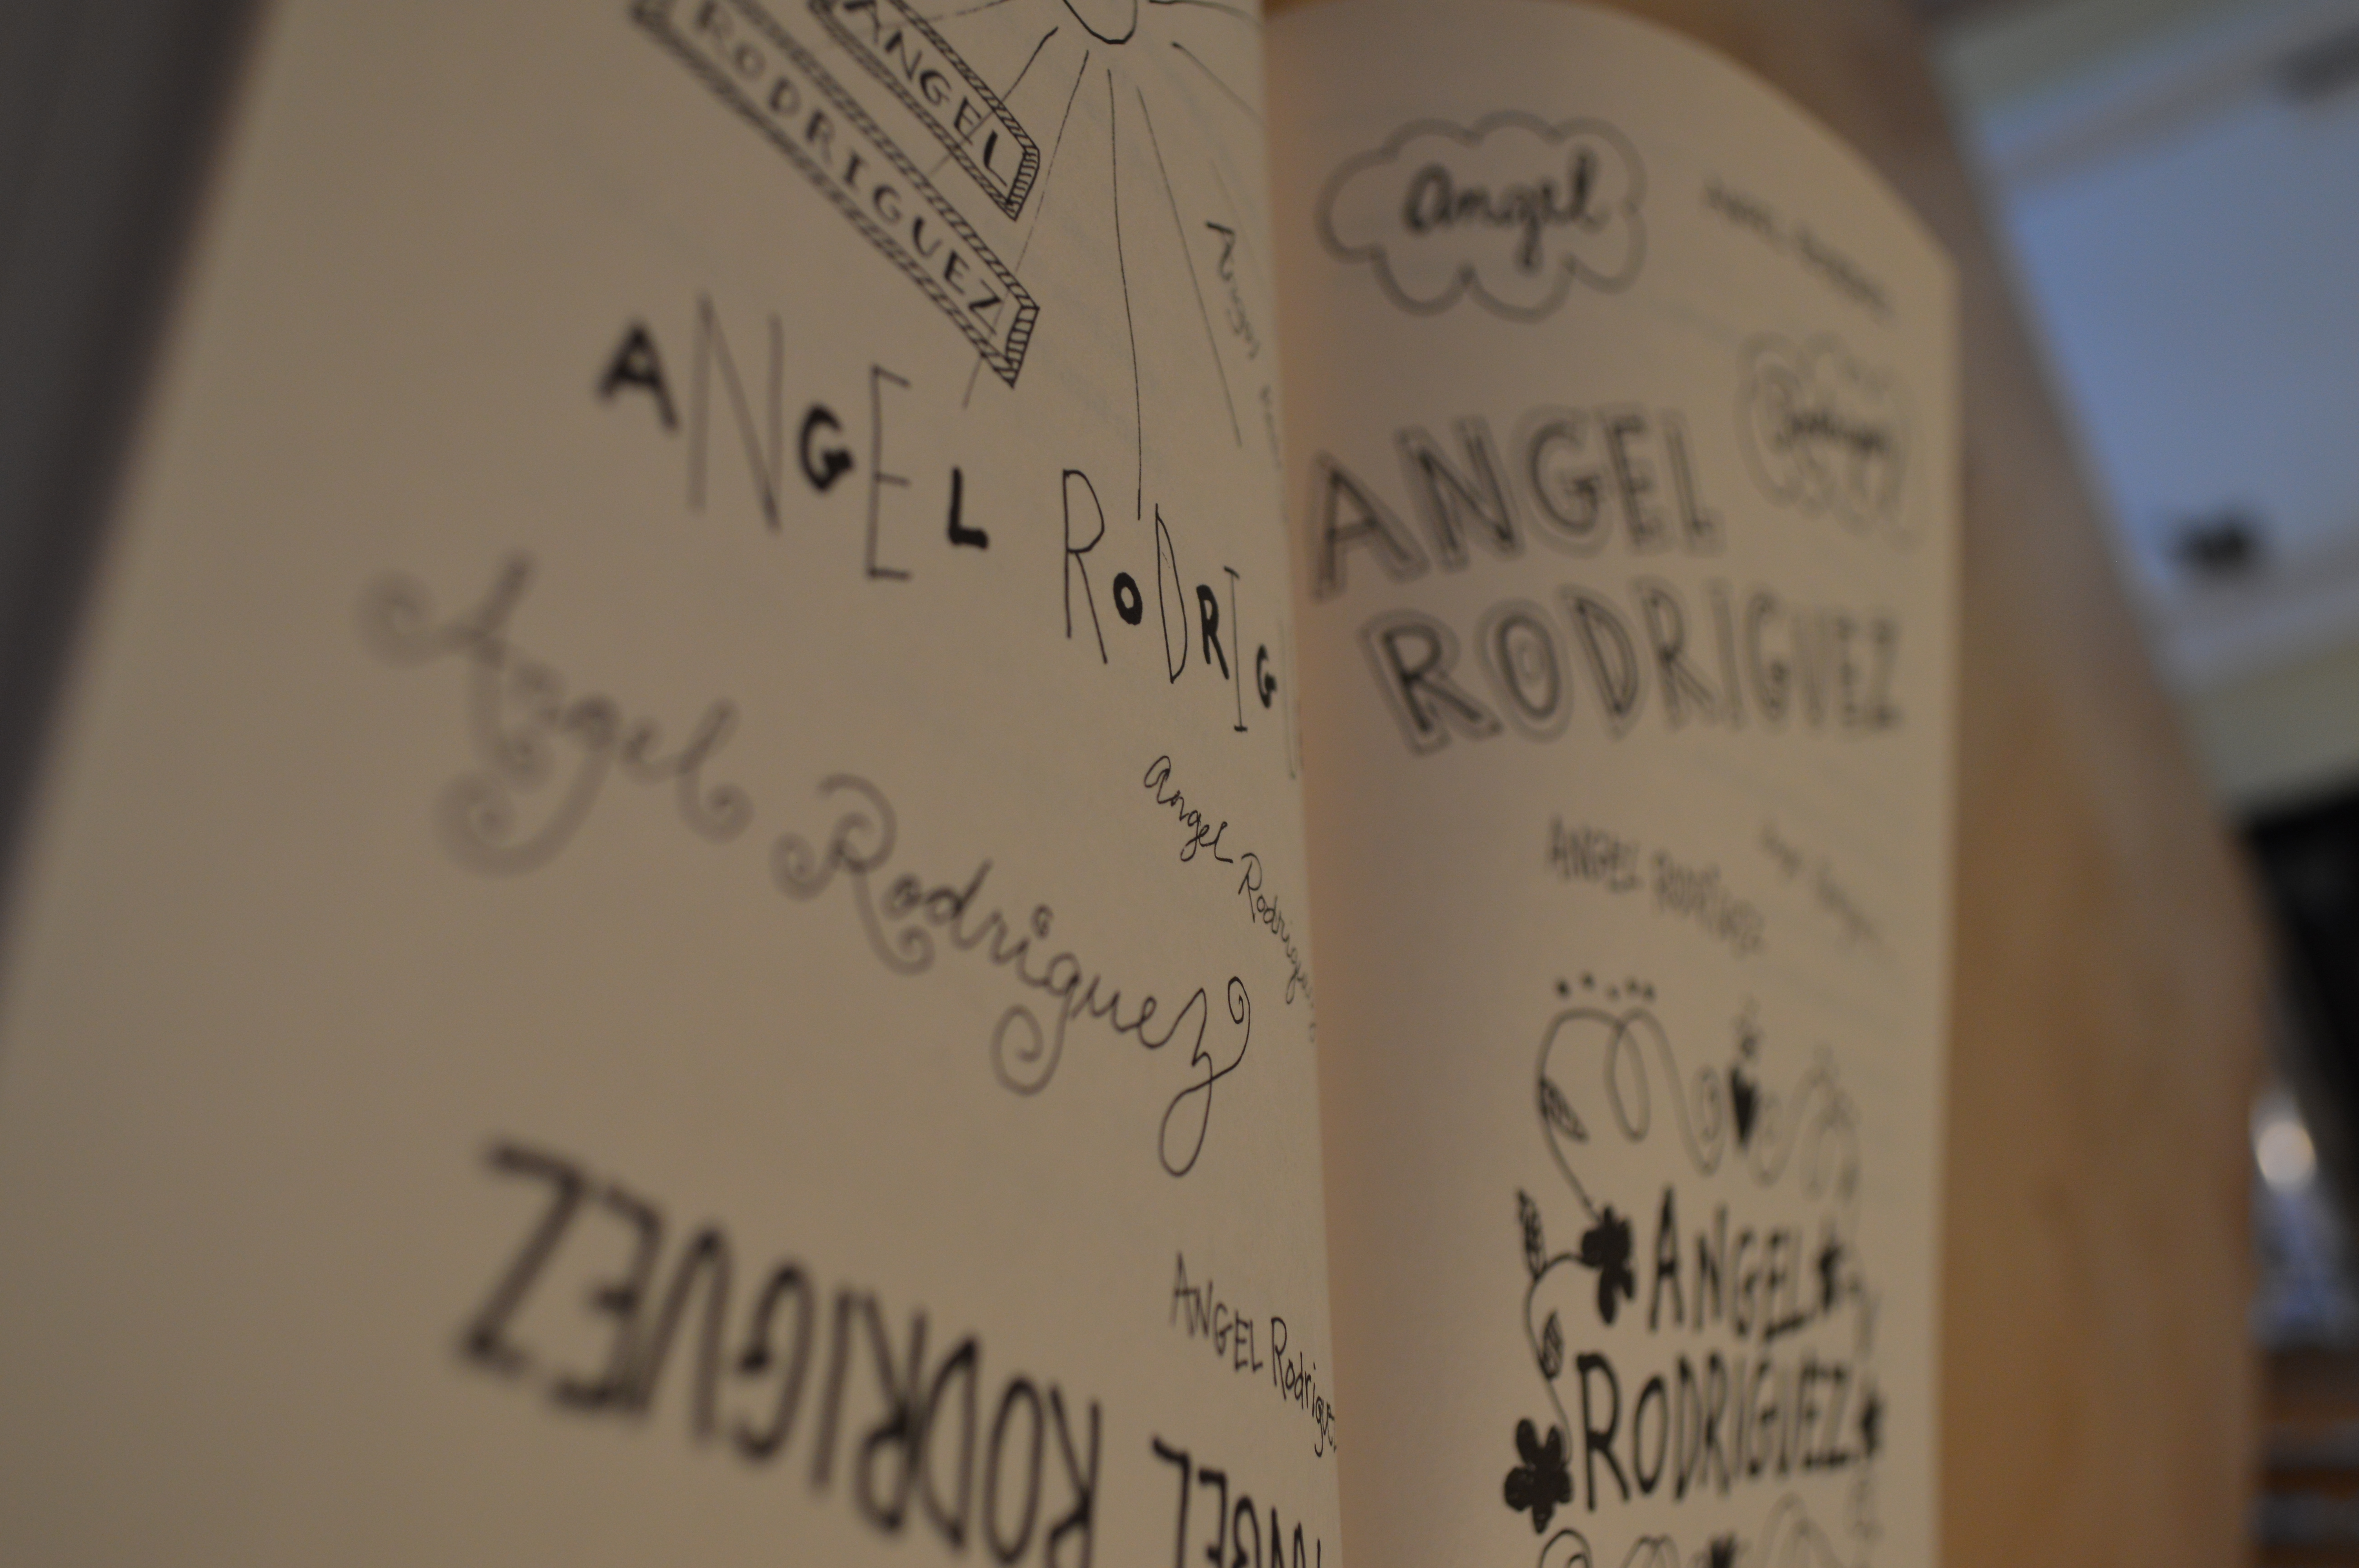 ANGEL
RODRIGUEZ
ANGEL RODRIG
Angel
Angel Rodriguez
Angel Rodriguez
ANGEL Rodrigue
ANGEL RODRIGUEZ
Angel
ANGEL
RODRIGUEZ
ANGEL RODRIGUEZ
ANGEL
RODRIGUEZ